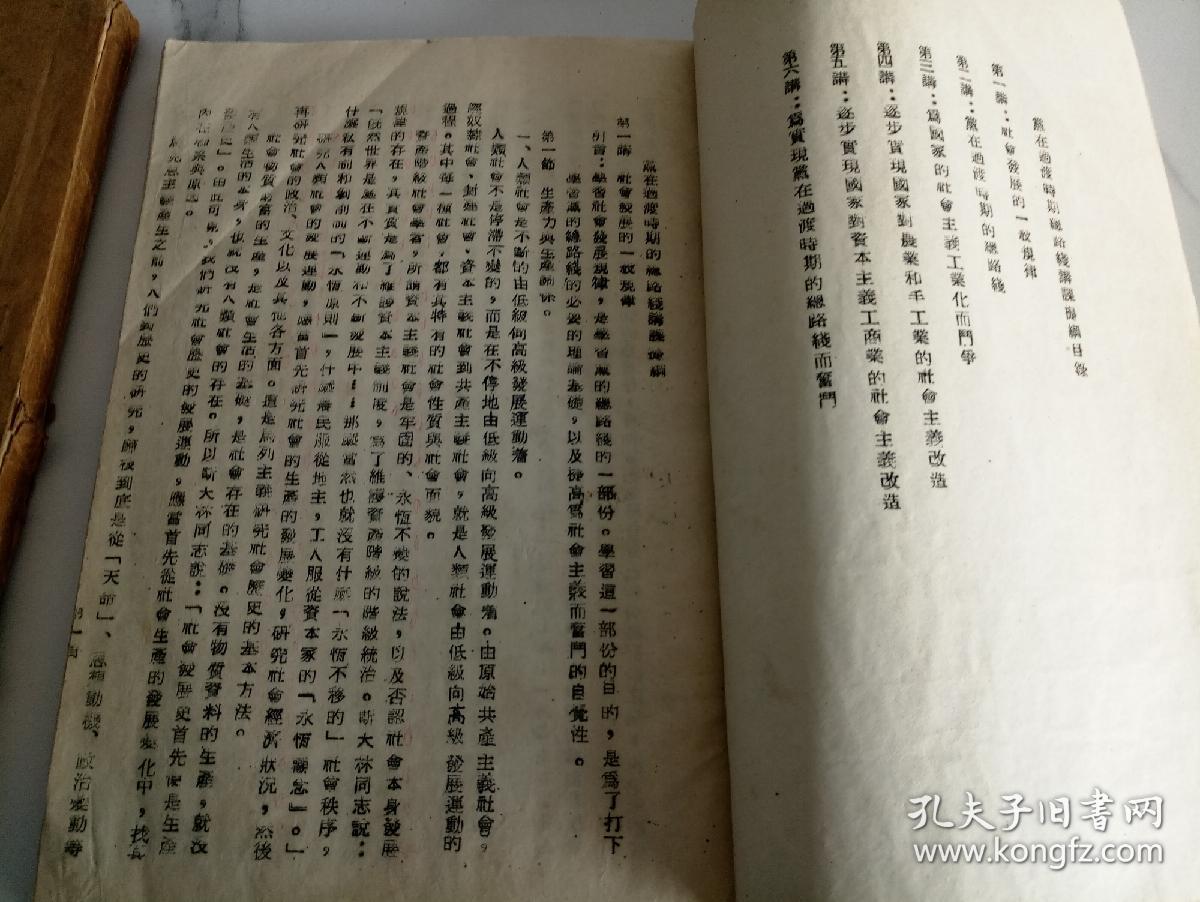 黨在過渡時期總路綫講課提綱目錄
第一講：社會發展的一般規律
第二講：黨在過渡時期的總路綫
第三講：爲國家的社會主義工業化而鬥爭
第四講：逐步實現國家對農業和手工業的社會主義改造
第五講：逐步實現國家對資本主義工商業的社會主義改造
第六講：爲實現黨在過渡時期的總路綫而奮鬥
黨在過渡時期的總路綫講課提綱
第一講 社會發展的一般規律
引言：學習社會發展規律，是學習黨的總路綫的一部份。學習這一部份的目的，是爲了打下
學習黨的總路綫的必要的理論基礎，以及提高爲社會主義而奮鬥的自覺性。
第一節 生產力與生產關係。
一、人類社會是不斷的由低級向高級發展運動着。
人類社會不是停滯不變的，而是在不停地由低級向高級發展運動着。由原始共產主義社會，
經奴隸社會、封建社會、資本主義社會到共產主義社會，就是人類社會由低級向高級發展運動的
過程。其中每一種社會，都有其特有的社會性質與社會面貌。
資產階級社會學者，所謂資本主義社會是牢固的、永恆不變的說法，以及否認社會本身發展
規律的存在，其實質是爲了維護資本主義制度，爲了維護資產階級的階級統治。斯大林同志說：
「既然世界是處在不斷運動和不斷發展中⋯⋯那麼當然也就沒有什麼「永恆不移的」社會秩序，
什麼私有制和剝削制的「永恆原則」，什麼農民服從地主，工人服從資本家的「永恆觀念」。」
研究人類社會的發展運動，應當首先研究社會的生產的發展變化，研究社會經濟狀況，然後
再研究社會的政治、文化以及其他各方面。這是馬列主義研究社會歷史的基本方法。
社會物質財富的生產，是社會生活的基礎，是社會存在的基礎。沒有物質資料的生產，就沒
有人類生活的本身，也就沒有人類社會的存在。所以斯大林同志說：「社會發展史首先便是生產
發展史」。由此可見，我們研究社會歷史的發展運動，應當首先從社會生產的發展變化中，找其
內在的根源與原因。
馬克思主義產生之前，人們對歷史的研究，歸根到底是從「天命」、思想動機、政治變動等
第一頁
孔夫子旧书网
www.kongfz.com